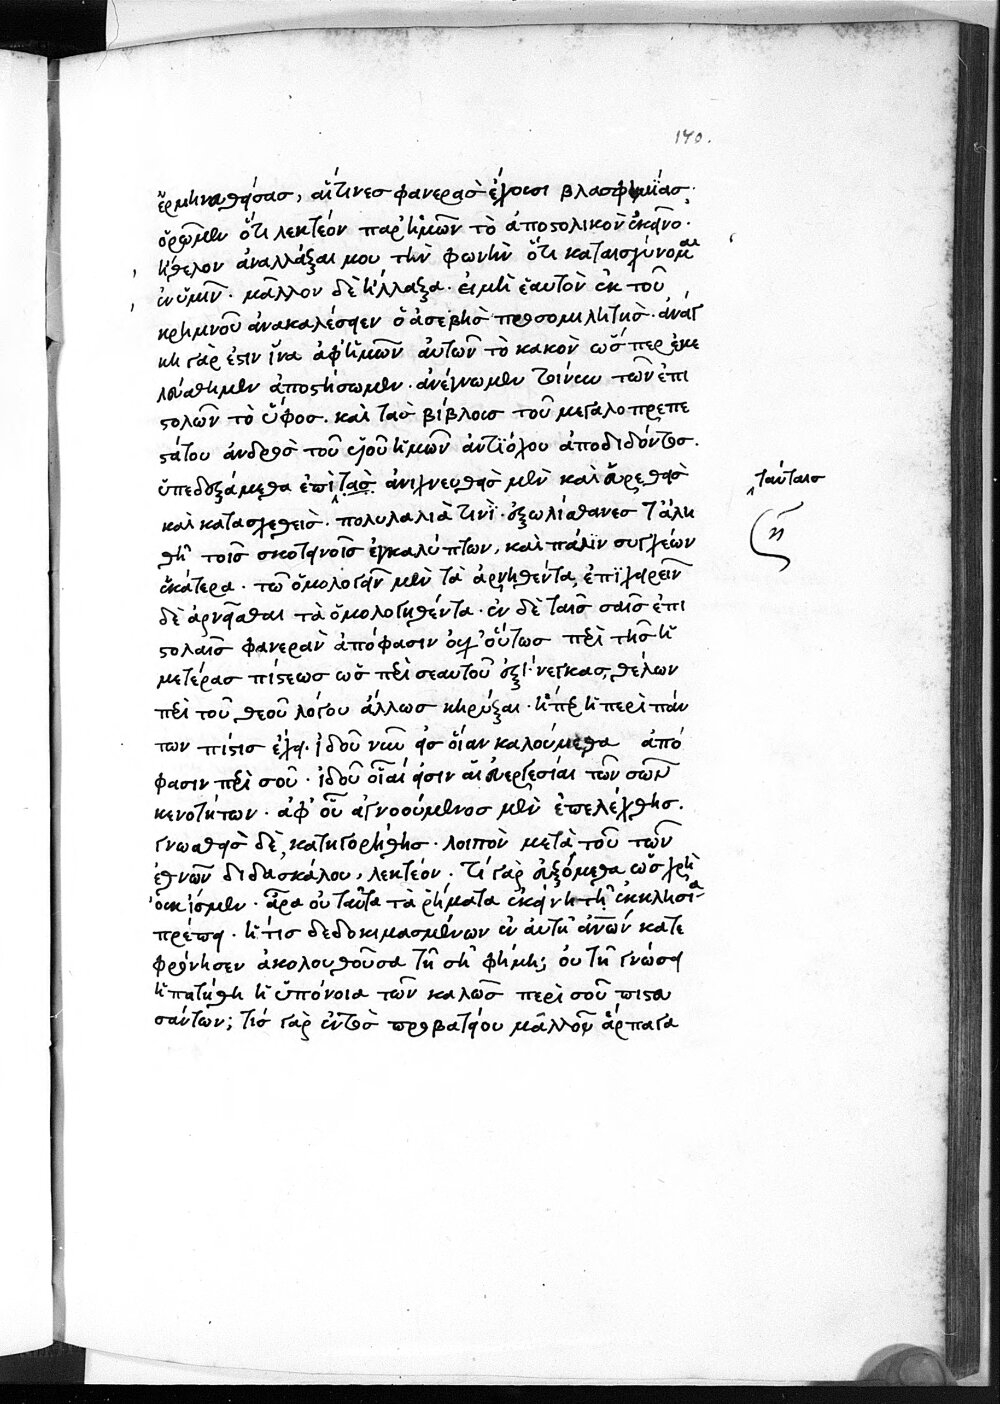 170.
ἑρμηνευθείσας, αἵτινες φανερὰς ἔχουσι βλασφημίας.
ὁρῶμεν ὅτι λεκτέον παρ' ἡμῶν τὸ ἀποστολικὸν ἐκεῖνο.
ἤθελον ἀναλλάξαι μου τὴν φωνὴν ὅτι καταισχύνομαι
ἐν ὑμῖν. μᾶλλον δὲ ἤλλαξα. εἰ μὴ ἑαυτὸν ἐκ τοῦ
κρημνοῦ ἀνακαλέσειεν ὁ ἀσεβὴς προσομιλητής. ἀνάγ
κη γάρ ἐστιν ἵνα ἀφ' ἡμῶν αὐτῶν τὸ κακὸν ὥσπερ ἐκε
λεύσθημεν ἀποστήσωμεν. ἀνέγνωμεν τοίνυν τῶν ἐπι
στολῶν τὸ ὕφος. καὶ τὰς βίβλους τοῦ μεγαλοπρεπε
στάτου ἀνδρὸς τοῦ υἱοῦ ἡμῶν ἀντιόχου ἀποδιδόντος.
ὑπεδεξάμεθα ἐπὶ τὰς ἀνιχνευθεὶς μὲν καὶ εὑρεθεὶς
ταύταις
καὶ κατασχεθεὶς. πολυλαλιὰ τινὶ. ἐξωλίσθανες τἀλη
θῆ τοῖς σκοτεινοῖς ἐγκαλύπτων, καὶ πάλιν συγχέων
ἑκάτερα. τῶ ὁμολογεῖν μὲν τὰ ἀρνηθέντα, ἐπιχειρεῖν
δὲ ἀρνεῖσθαι τὰ ὁμολογηθέντα. ἐν δὲ ταῖς σαῖς ἐπι
στολαῖς φανερὰν ἀπόφασιν οὐχ' οὕτως περὶ τῆς ἡ
μετέρας πίστεως ὡς περὶ σεαυτοῦ ἐξήνεγκας, θέλων
περὶ τοῦ θεοῦ λόγου ἄλλως κηρύξαι. ἤπερ ἡ περὶ πάν
των πίστις ἔχει. ἰδοῦ νῦν εἰς οἵαν καλούμεθα ἀπό
φασιν περὶ σοῦ. ἰδοῦ οἷαί εἰσιν αἱ εὐεργεσίαι τῶν σῶν
κενοτήτων. ἀφ' οὗ ἀγνοούμενος μὲν ἐπελέχθης.
γνωσθεὶς δὲ, κατηγορήθης. λοιπὸν μετὰ τοῦ τῶν
ἐθνῶν διδασκάλου, λεκτέον. τί γὰρ εὐξόμεθα ὡς χρὴ
οὐκ ἴσμεν. ἆρα οὐ ταῦτα τὰ ῥήματα ἐκείνη τῆ ἐκκλησία
πρέπει. ἥτις δεδοκιμασμένων ἐν αὐτῆ ἀνῶν κατε
φρόνησεν ἀκολουθοῦσα τῆ σῆ φήμη; οὐ τῆ γνώσει
ἠπατήθη ἡ ὑπόνοια τῶν καλῶς περὶ σοῦ πιστευ
σάντων; τίς γὰρ ἐντὸς προβατείου μαλλοῦ ἅρπαγα